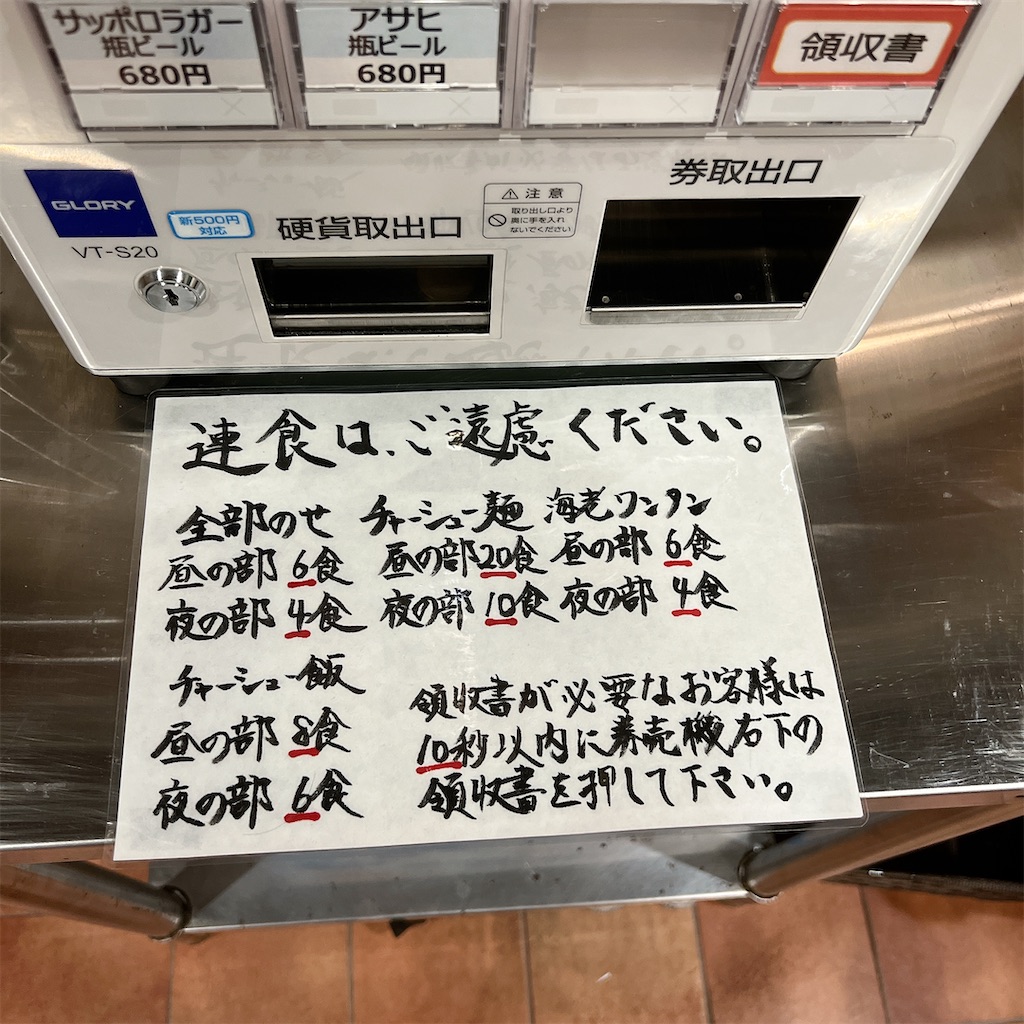 サッポロラガー
瓶ビール
680円
アサヒ
瓶ビール
680円
領収書
GLORY
新500円
対応
VT-S20
硬貨取出口
注意
取り出し口より
奥に手を入れ
ないでください
券取出口
連食は、ご遠慮ください。
全部のせ
昼の部 6食
夜の部 4食
チャーシュー麺
昼の部20食
夜の部 10食
海老ワンタン
昼の部 6食
夜の部 4食
チャーシュー飯
昼の部 8食
夜の部 6食
領収書が必要なお客様は
10秒以内に券売機右下の
領収書を押して下さい。